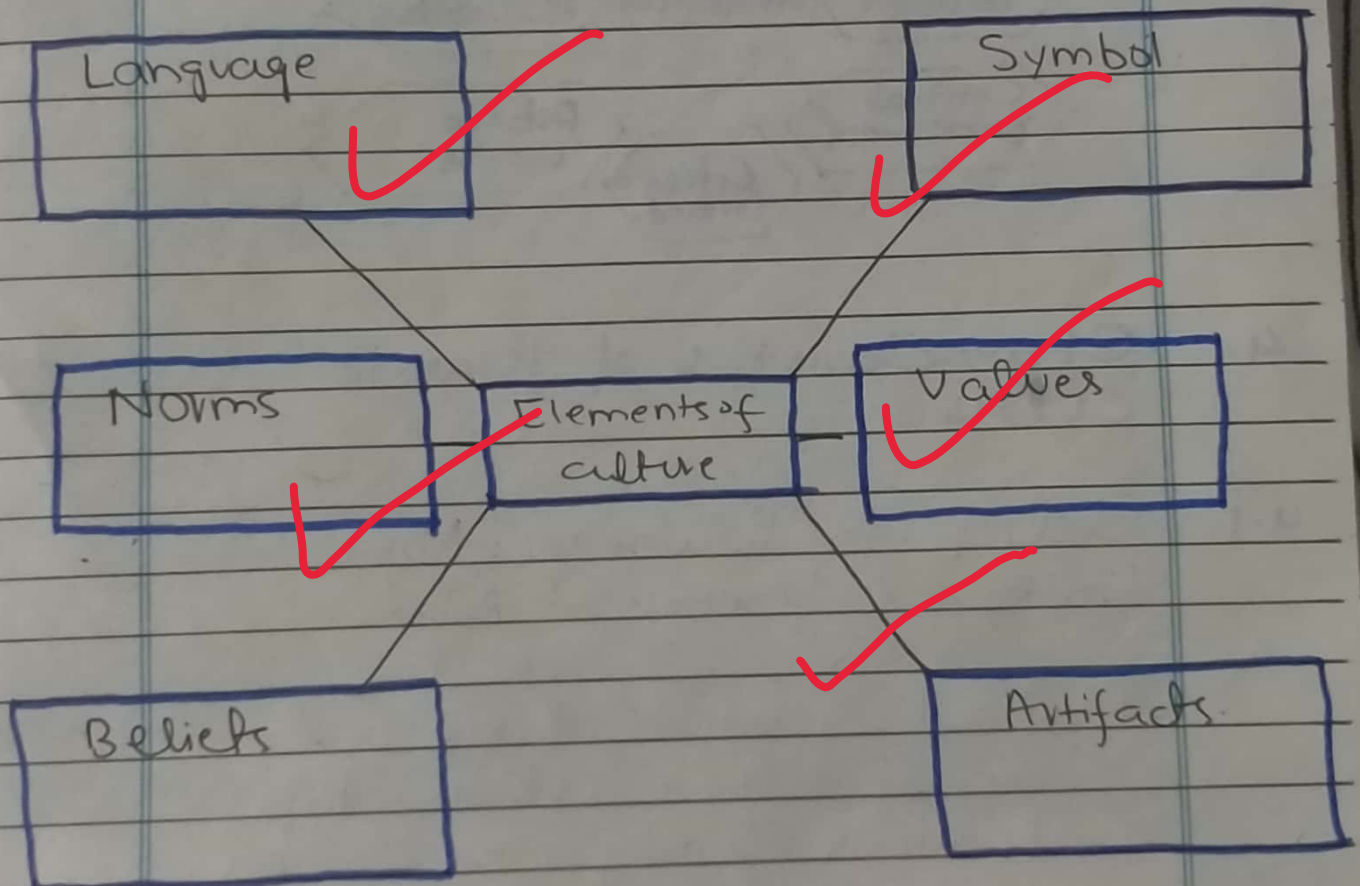 Language
Symbol
Norms
Elements of
culture
Values
Beliefs
Artifacts